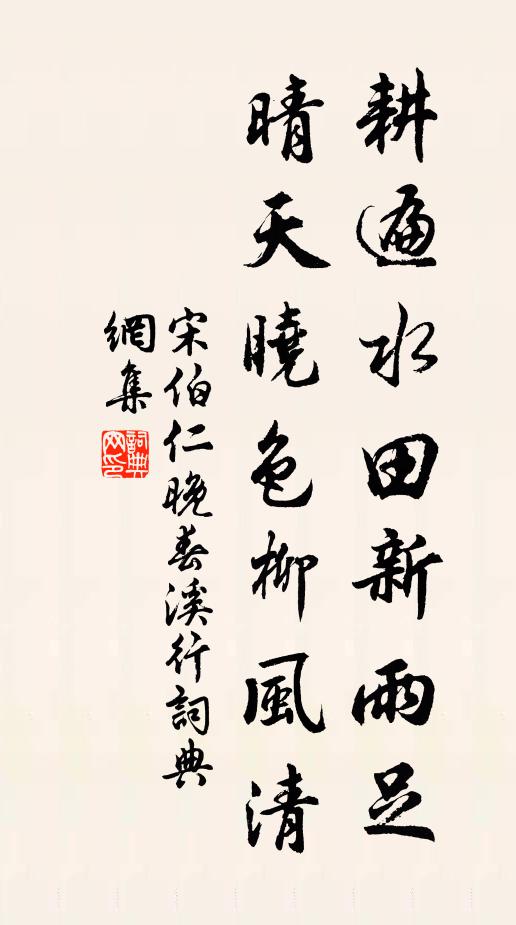 耕遍水田新雨足
晴天曉色柳風清
宋伯仁晚春溪行詞典
網集
詞典网印